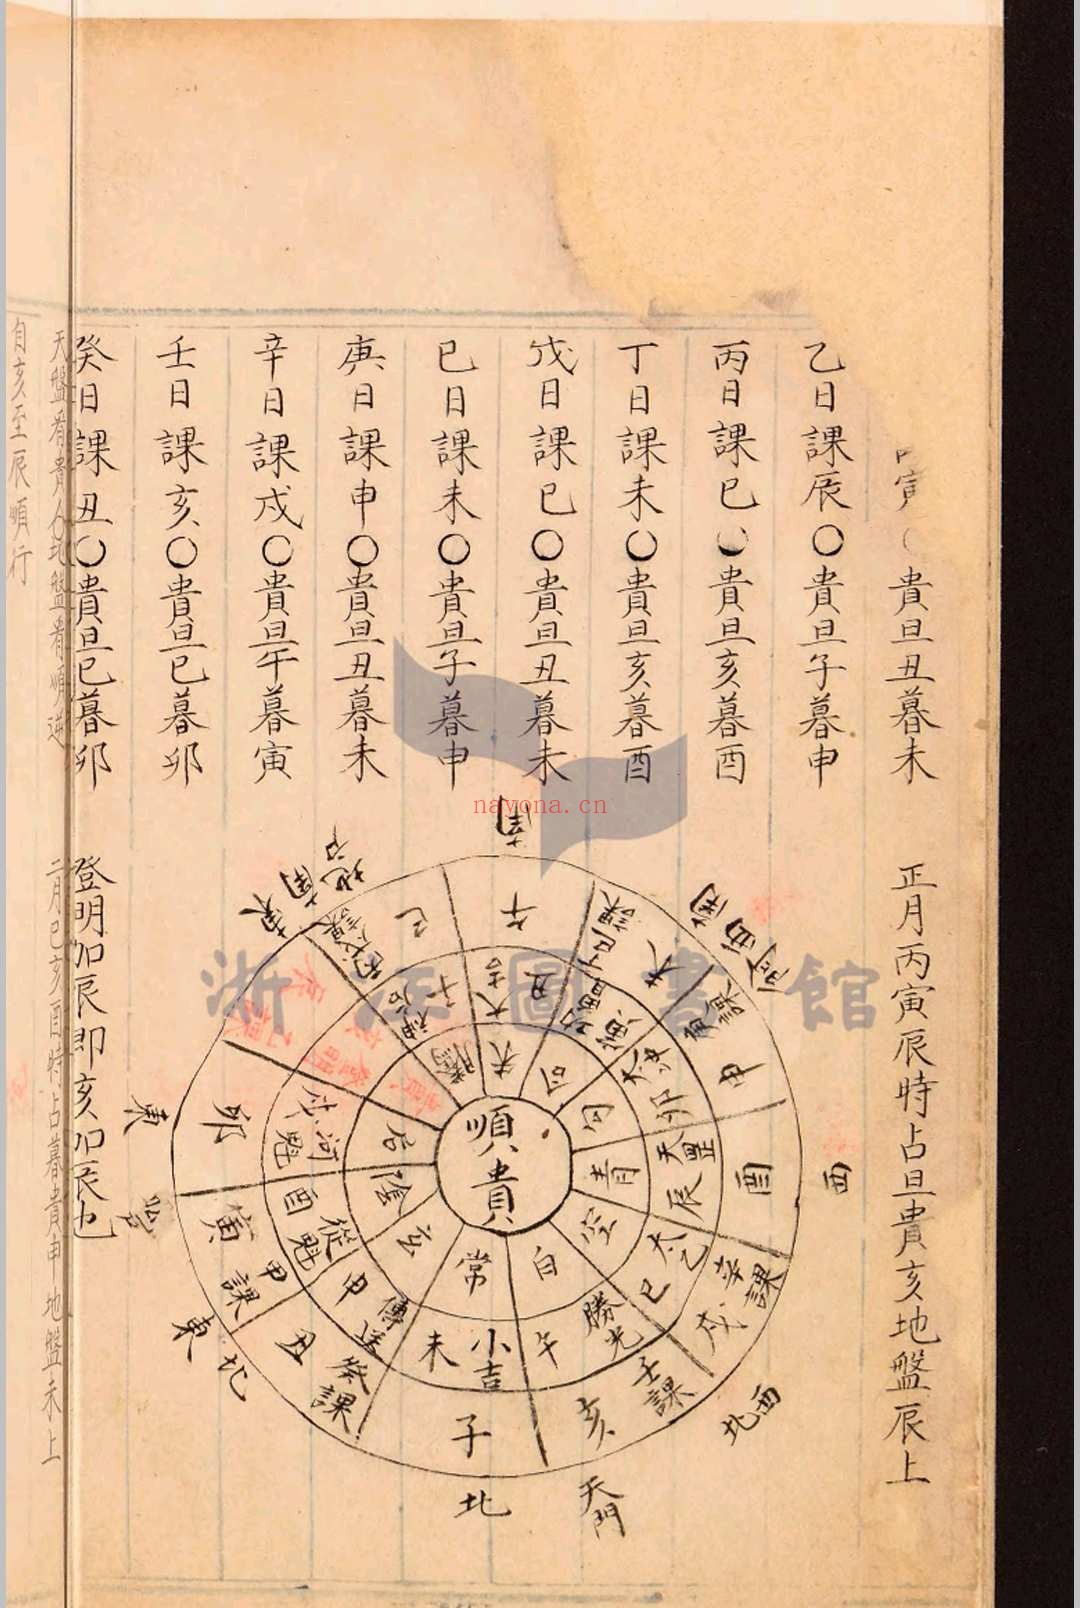 寅〇貴旦丑暮未
乙日課辰〇貴旦子暮申
丙日課巳〇貴旦亥暮酉
丁日課未〇貴旦亥暮酉
戊日課巳〇貴旦丑暮未
巳日課未〇貴旦子暮申
庚日課申〇貴旦丑暮未
辛日課戍〇貴旦午暮寅
壬日課亥〇貴旦巳暮卯
癸日課丑〇貴旦巳暮卯
正月丙寅辰時占旦貴亥地盤辰上
登明加辰即亥加辰也
天盤看貴人地盤看順逆
二月己亥酉時占暮貴申地盤未上
自亥至辰順行
南
西南
西
西北
天門
北
東北
東
東南
地户
順貴
天
后
勾
青
空
白
常
玄
陰
后
大吉 丑
功曹 寅
太冲 卯
天罡 辰
太乙 巳
勝光 午
小吉 未
傳送 申
從魁 酉
河魁 戌
登明
神后 子
午
丁己課 未
庚課 申
酉
辛課 戌
壬課 亥
子
癸課 丑
甲課 寅
卯
丙戊課 巳
浙江圖書館
nayona.cn